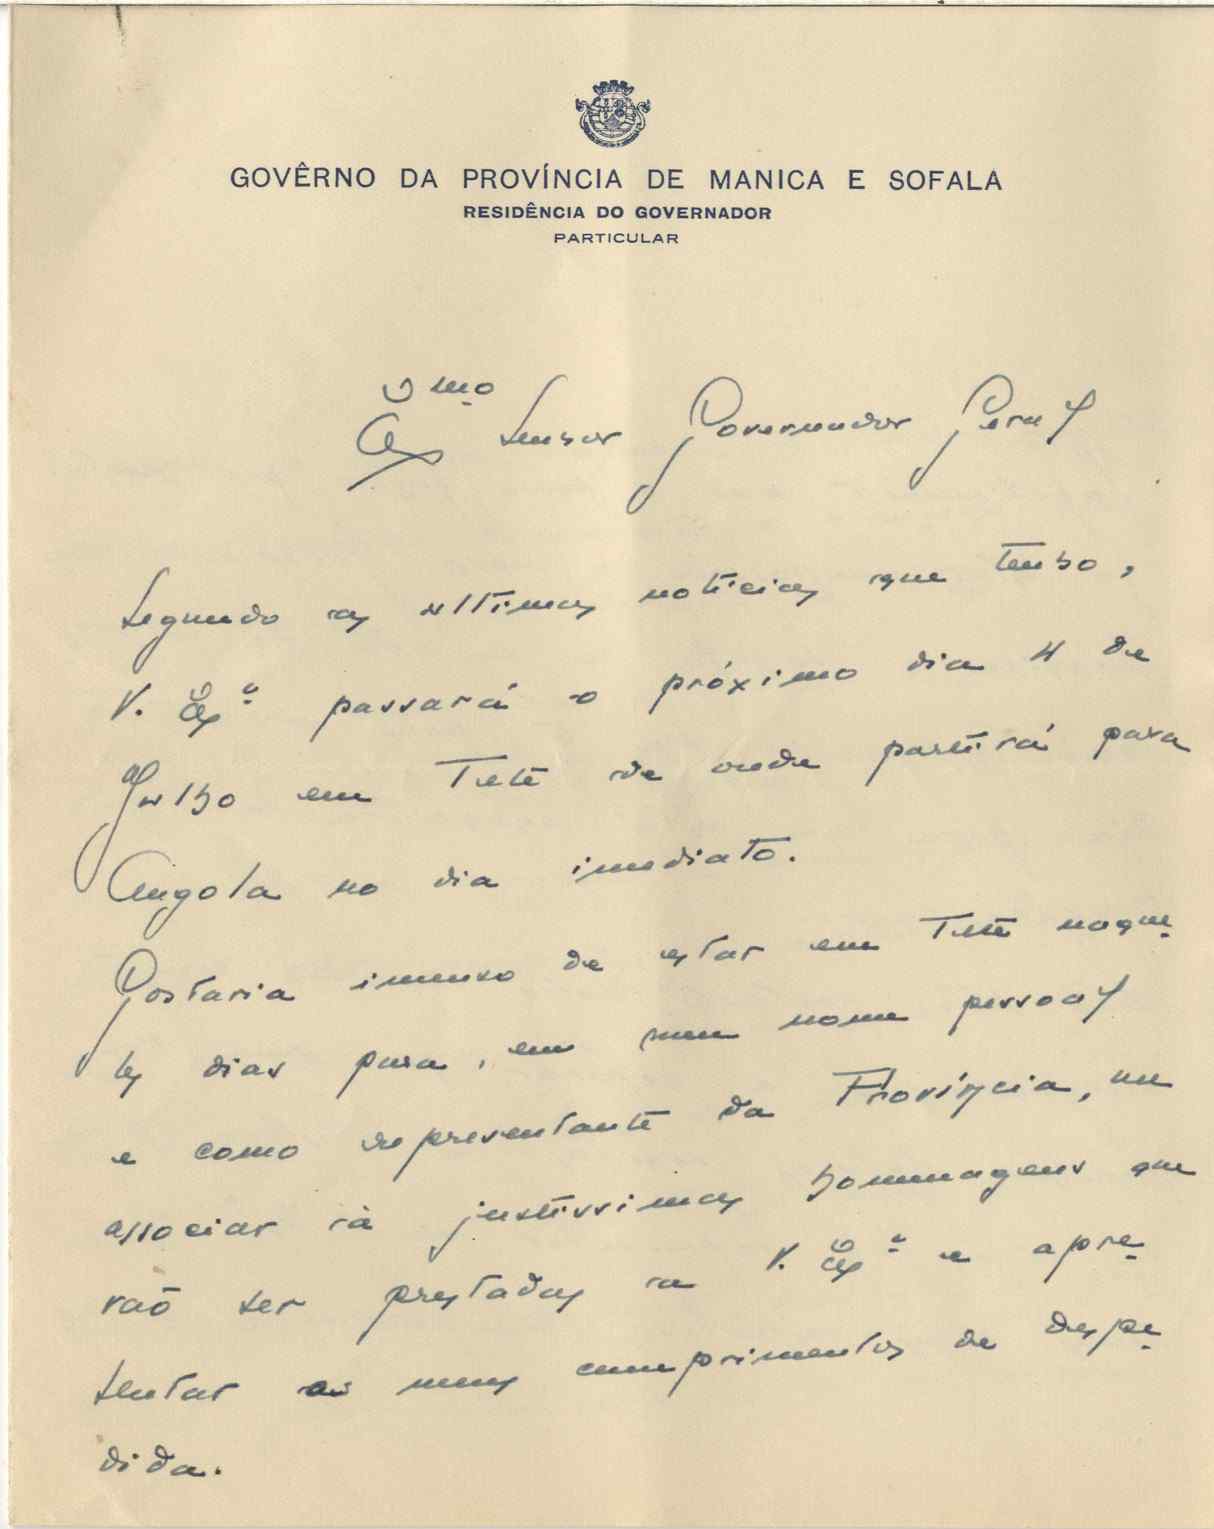 GOVÊRNO DA PROVÍNCIA DE MANICA E SOFALA
RESIDÊNCIA DO GOVERNADOR
PARTICULAR
Exmo Senhor Governador Geral
Segundo as ultimas noticias que tenho,
V. Exª passará o próximo dia 4 de
Julho em Tete de onde partirá para
Angola no dia imediato.
Gostaria imenso de estar em Tete naque-
les dias para, em meu nome pessoal
e como representante da Província, me
associar às justissimas homenagens que
vão ser prestadas a V. Exª e apre-
sentar os meus cumprimentos de despe-
dida.